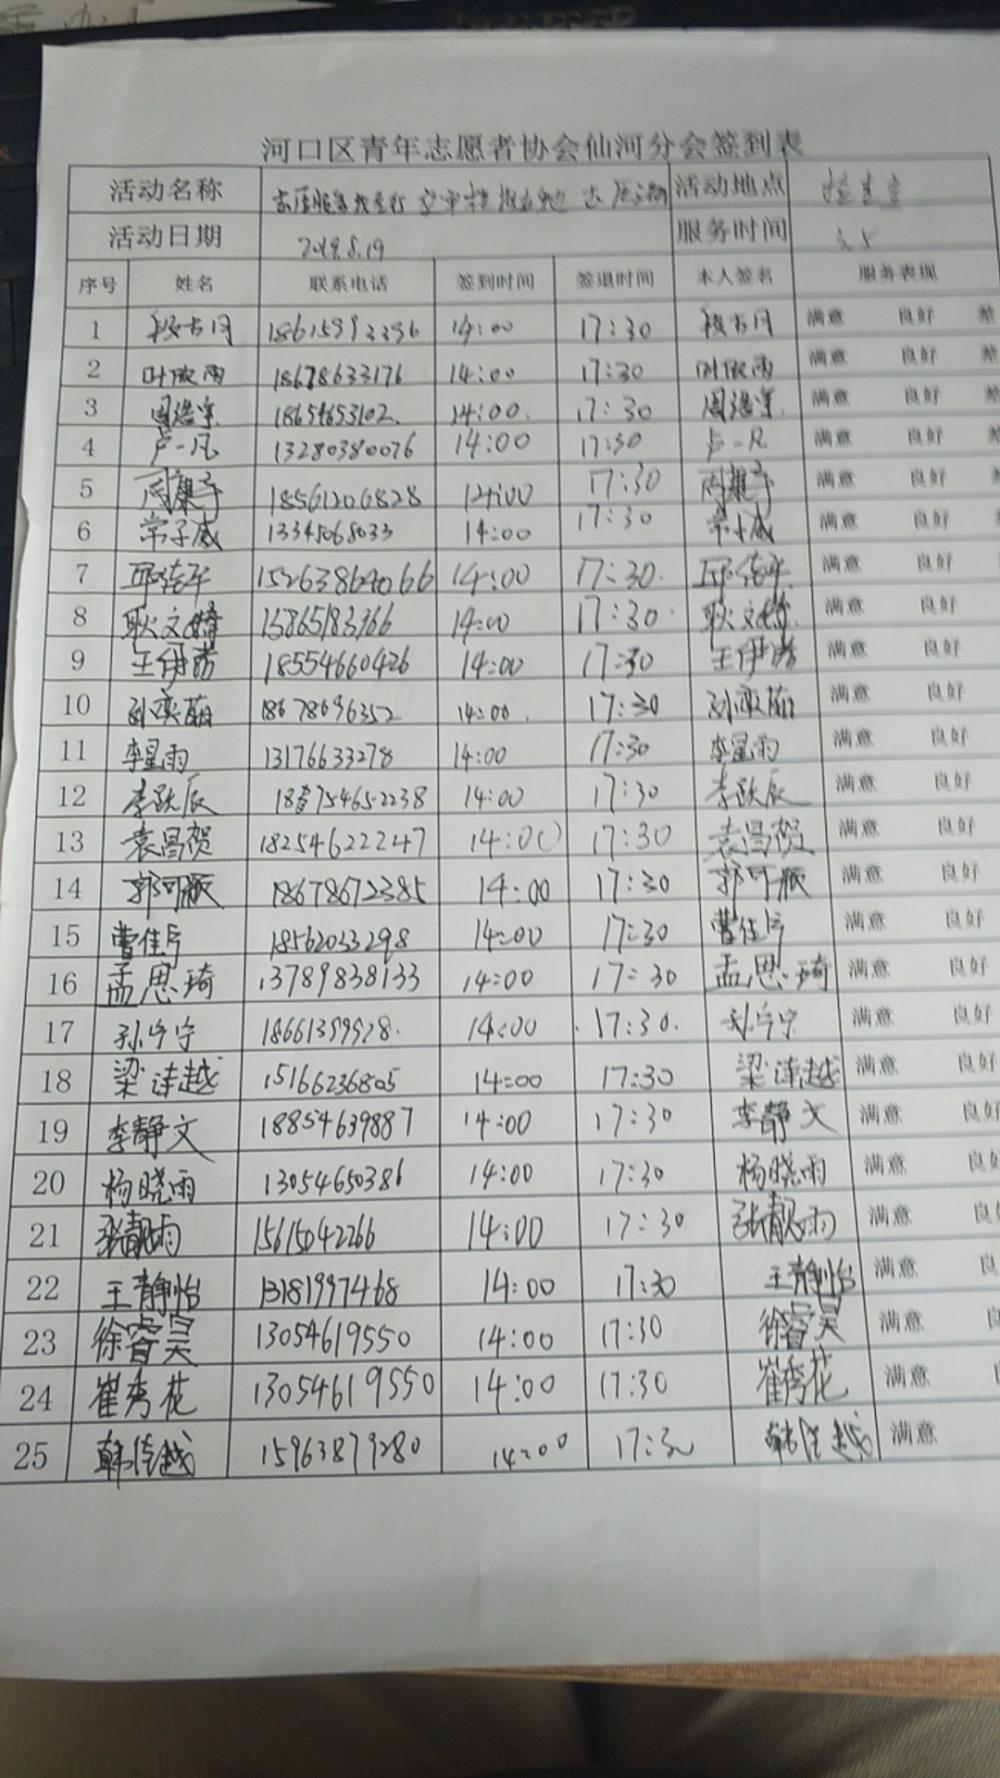 河口区青年志愿者协会仙河分会签到表
活动名称 志愿服务我先行 活动地点
活动日期 2019.8.19 服务时间 3.5
序号 姓名 联系电话 签到时间 签退时间 本人签名 服务表现
1 段古月 18615993396 14:00 17:30 段古月 满意 良好 差
2 叶依雨 18678633176 14:00 17:30 叶依雨 满意 良好 差
3 18654653102 14:00 17:30 满意 良好 差
4 卢一凡 13280380076 14:00 17:30 卢一凡 满意 良好 差
5 18561206828 14:00 17:30 满意 良好 差
6 常子威 13345068033 14:00 17:30 常子威 满意 良好 差
7 14:00 17:30 满意 良好
8 耿文婷 15865183366 14:00 17:30 耿文婷 满意 良好
9 18554660426 14:00 17:30 满意 良好
10 18678696352 14:00 17:30 满意 良好
11 李星雨 13176633278 14:00 17:30 李星雨 满意 良好
12 李跃辰 14:00 17:30 李跃辰 满意 良好
13 袁昌贺 18254622247 14:00 17:30 袁昌贺 满意 良好
14 18678672385 14:00 17:30 满意 良好
15 18562033298 14:00 17:30 满意 良好
16 孟思琦 13789838133 14:00 17:30 孟思琦 满意 良好
17 孙宁宁 14:00 17:30 孙宁宁 满意 良好
18 15166236805 14:00 17:30 满意 良好
19 李静文 18854639887 14:00 17:30 李静文 满意 良好
20 杨晓雨 13054650386 14:00 17:30 杨晓雨 满意 良好
21 张靓雨 15615042266 14:00 17:30 张靓雨 满意 良好
22 王静怡 13181997468 14:00 17:30 王静怡 满意 良
23 徐睿昊 13054619550 14:00 17:30 徐睿昊 满意
24 崔秀花 13054619550 14:00 17:30 崔秀花 满意
25 韩佳越 15963879280 14:00 17:30 韩佳越 满意